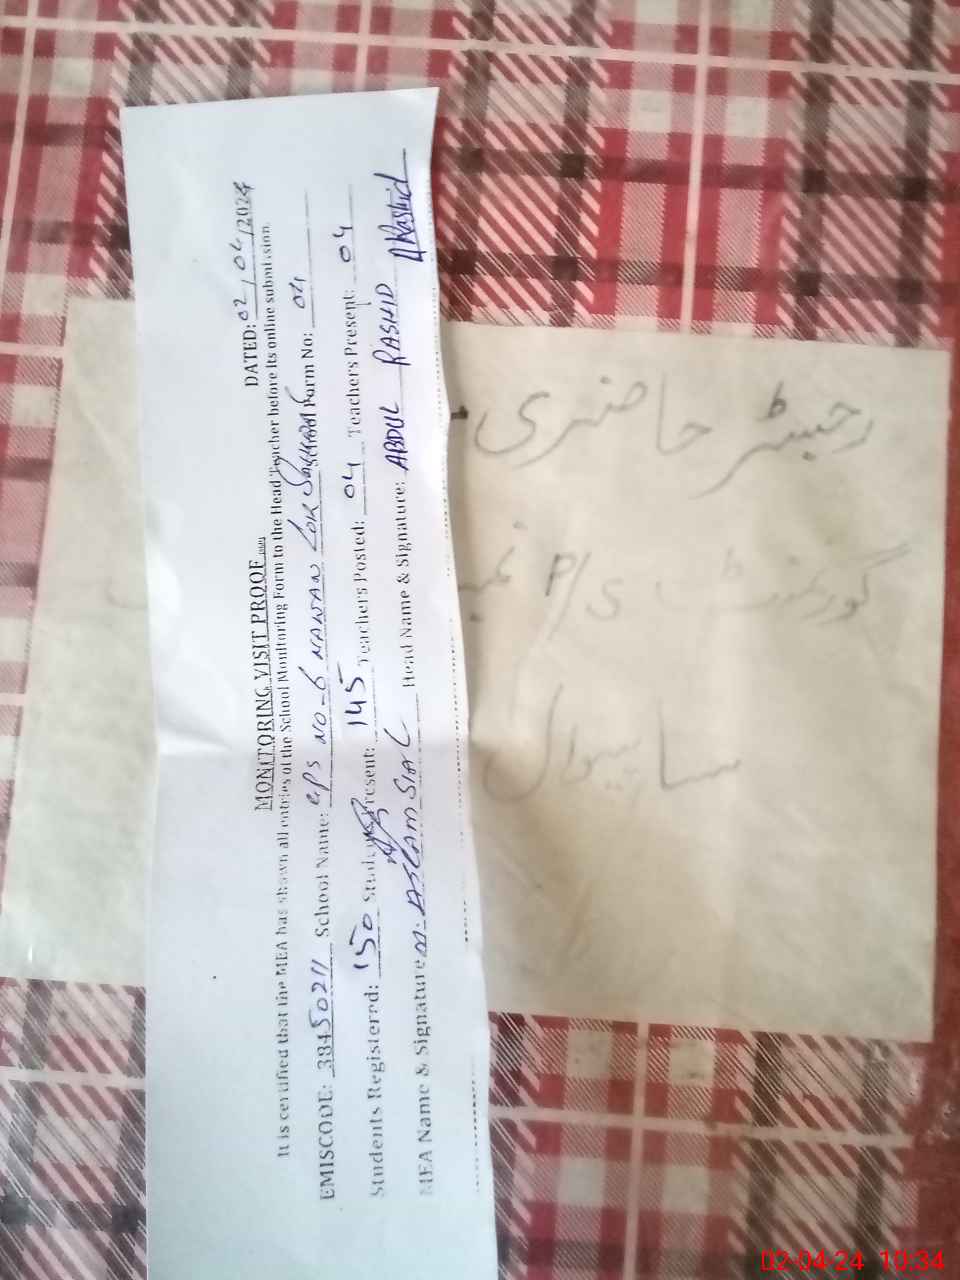 DATED: 02/04/2024
MONITORING VISIT PROOF
It is certified that the MEA has shown all entries of the School Monitoring Form to the Head Teacher before its online submission.
EMISCODE: 38450211 School Name: GPS NO-6 NAWAN LOK Form No: 04
Students Registered: 150 Students Present: 145 Teachers Posted: 04 Teachers Present: 04
MEA Name & Signature M. ASLAM SIAL Head Name & Signature: ABDUL RASHID ARashid
رجسٹر حاضری
گورنمنٹ P/S نمبر
ساہیوال
02-04-24 10:34